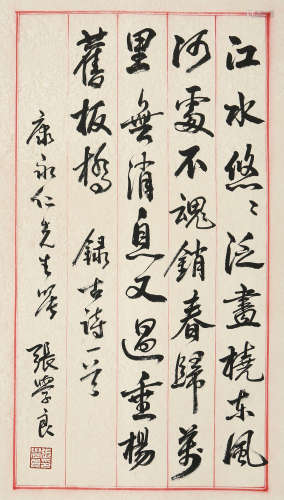 江水悠〻泛畫橈東風
河處不魂銷春歸萬
里無消息又過垂楊
舊板橋 録古詩一首
康永仁先生 張學良